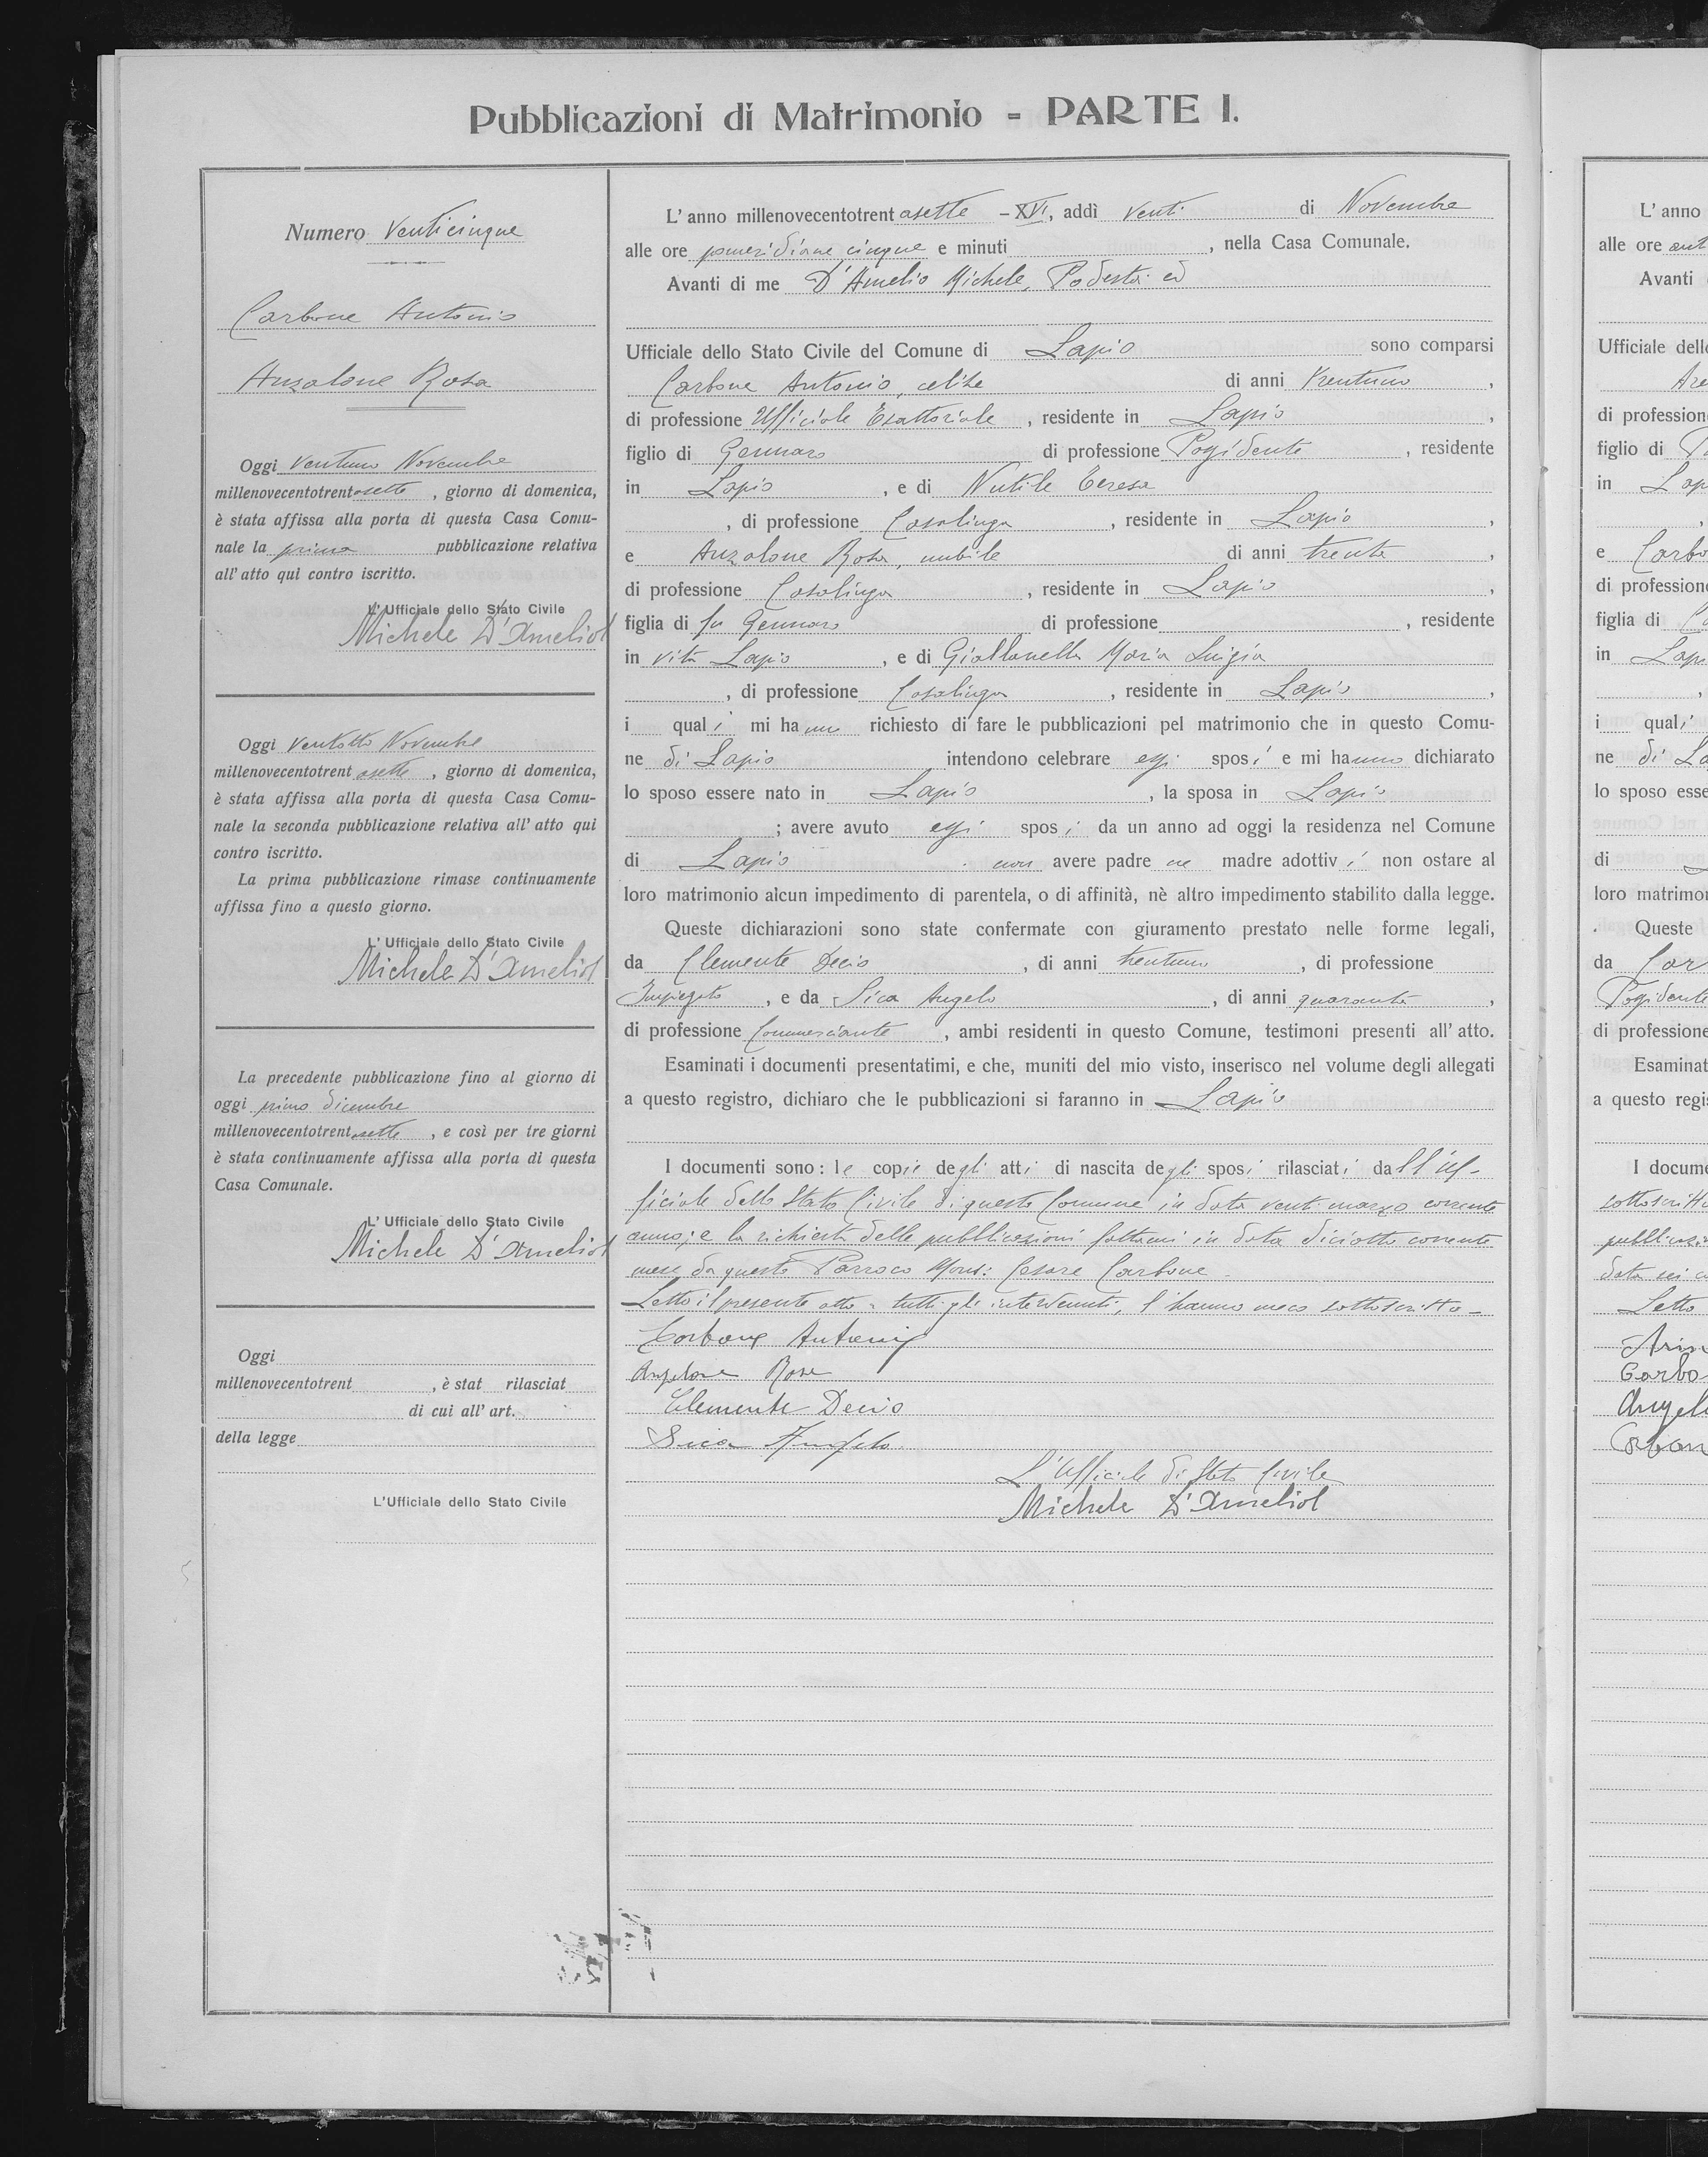 Pubblicazioni di Matrimonio - PARTE I.
Numero Venticinque
Carbone Antonio
Anzalone Rosa
Oggi ventuno Novembre
millenovecentotrentasette, giorno di domenica,
è stata affissa alla porta di questa Casa Comu-
nale la prima pubblicazione relativa
all'atto qui contro iscritto.
L'Ufficiale dello Stato Civile
Michele D'Amelio
Oggi ventotto Novembre
millenovecentotrentasette, giorno di domenica,
è stata affissa alla porta di questa Casa Comu-
nale la seconda pubblicazione relativa all'atto qui
contro iscritto.
La prima pubblicazione rimase continuamente
affissa fino a questo giorno.
L'Ufficiale dello Stato Civile
Michele D'Amelio
La precedente pubblicazione fino al giorno di
oggi primo dicembre
millenovecentotrentasette, e così per tre giorni
è stata continuamente affissa alla porta di questa
Casa Comunale.
L'Ufficiale dello Stato Civile
Michele D'Amelio
Oggi
millenovecentotrent , è stat rilasciat
di cui all'art.
della legge
L'Ufficiale dello Stato Civile
L'anno millenovecentotrentasette - XVI, addì venti di Novembre
alle ore pomeridiane cinque e minuti , nella Casa Comunale.
Avanti di me D'Amelio Michele, Podestà ed
Ufficiale dello Stato Civile del Comune di Lapio sono comparsi
Carbone Antonio, celibe di anni trentuno,
di professione Ufficiale Esattoriale, residente in Lapio,
figlio di Gennaro di professione Possidente, residente
in Lapio, e di Nutile Teresa
, di professione Casalinga, residente in Lapio,
e Anzalone Rosa, nubile di anni trenta,
di professione Casalinga, residente in Lapio,
figlia di fu Gennaro di professione , residente
in vita Lapio, e di Giallanella Maria Luigia
, di professione Casalinga, residente in Lapio,
i quali mi hanno richiesto di fare le pubblicazioni pel matrimonio che in questo Comu-
ne di Lapio intendono celebrare essi sposi e mi hanno dichiarato
lo sposo essere nato in Lapio, la sposa in Lapio
; avere avuto essi sposi da un anno ad oggi la residenza nel Comune
di Lapio non avere padre ne madre adottivi non ostare al
loro matrimonio alcun impedimento di parentela, o di affinità, nè altro impedimento stabilito dalla legge.
Queste dichiarazioni sono state confermate con giuramento prestato nelle forme legali,
da Clemente Decio, di anni trentuno, di professione
Impiegato, e da Sica Angelo, di anni quaranta,
di professione Commerciante, ambi residenti in questo Comune, testimoni presenti all'atto.
Esaminati i documenti presentatimi, e che, muniti del mio visto, inserisco nel volume degli allegati
a questo registro, dichiaro che le pubblicazioni si faranno in Lapio
I documenti sono: le copie degli atti di nascita degli sposi rilasciati dall'Uf-
ficiale dello Stato Civile di questo Comune in data venti marzo corrente
anno; e la richiesta delle pubblicazioni fattami in data diciotto corrente
mese da questo Parroco Mons: Cesare Carbone.
Letto il presente atto a tutti gli intervenuti, l'hanno meco sottoscritto-
Carbone Antonio
Anzalone Rosa
Clemente Decio
Sica Angelo
L'Ufficiale di Stato Civile
Michele D'Amelio
L'anno
alle ore ant
Avanti
Ufficiale dell
di profession
figlio di
in Lap
e Carbo
di profession
figlia di
in Lap
i quali
ne di La
lo sposo esse
di
loro matrimo
Queste
da Car
Possidente
di professione
Esaminat
a questo regi
I docume
sottoscritt
pubblicazi
Letto
Carbo
Angel